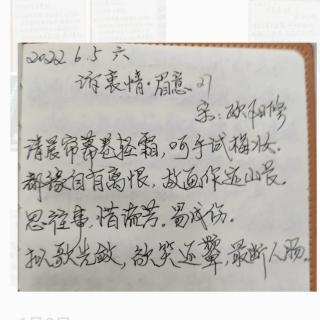 2022.6.5 六
诉衷情·眉意 27
宋:欧阳修
清晨帘幕卷轻霜,呵手试梅妆.
都缘自有离恨,故画作远山长.
思往事,惜流芳.易成伤.
拟歌先敛,欲笑还颦,最断人肠.